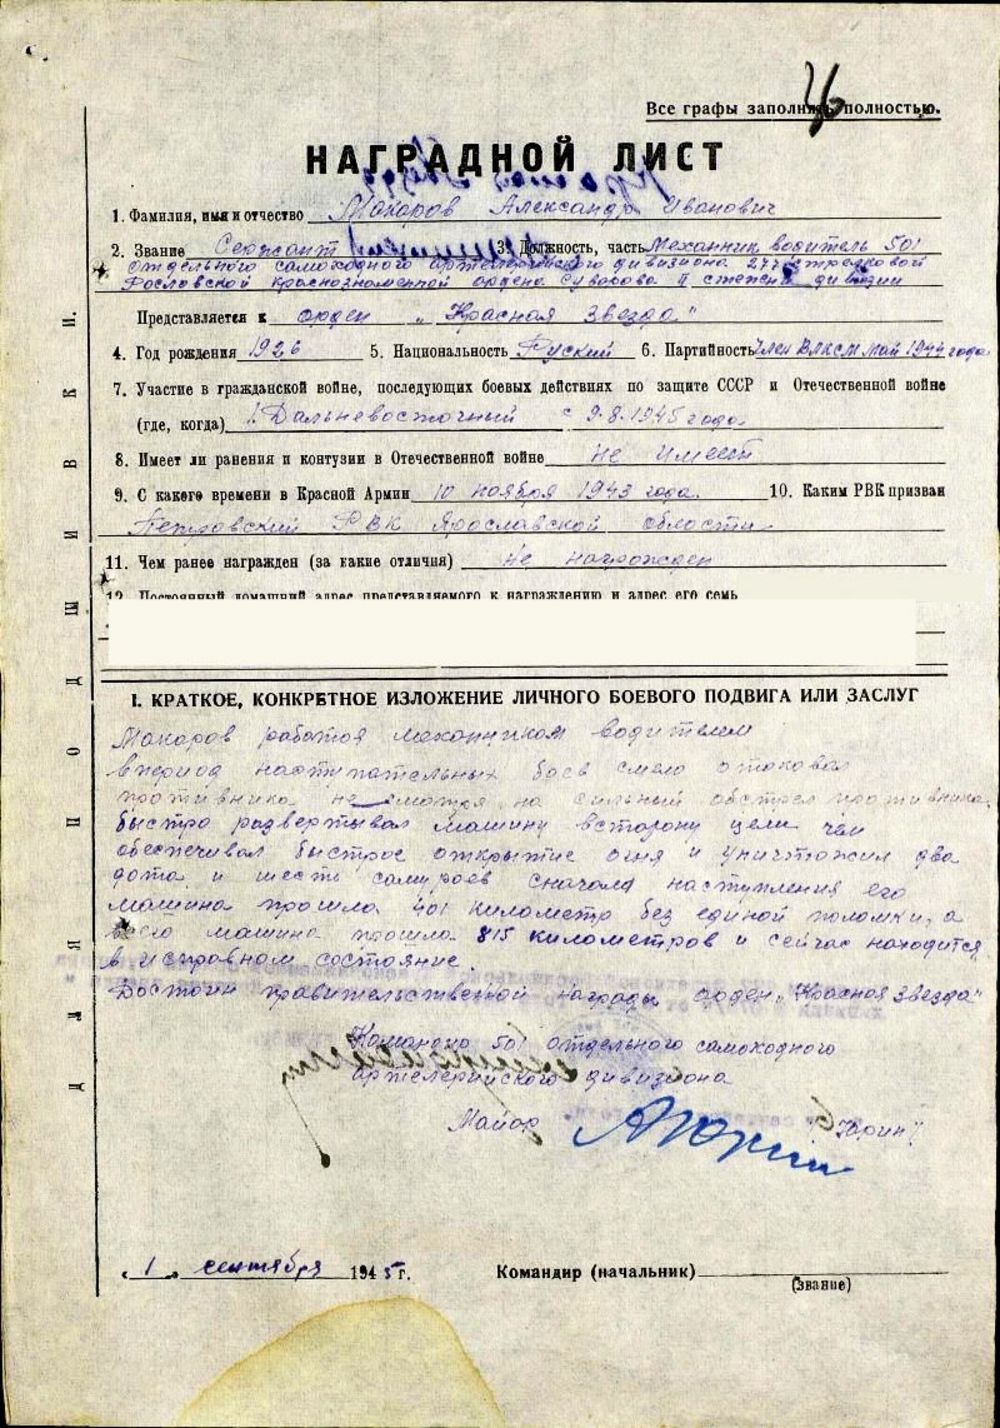 Все графы заполнять полностью.
НАГРАДНОЙ ЛИСТ
1. Фамилия, имя и отчество Макаров Александр Иванович
2. Звание Сержант 3. Должность, часть Механник водитель 501
отдельного самоходного артелерийского дивизиона 277 стрелковой
Рославской краснознаменной ордена Суворова II степени дивизии
Представляется к орден „Красная Звезда"
4. Год рождения 1926 5. Национальность Руский 6. Партийность Член ВЛКСМ май 1944 года
7. Участие в гражданской войне, последующих боевых действиях по защите СССР и Отечественной войне
(где, когда) 1. Дальневосточный с 9.8.1945 года.
8. Имеет ли ранения и контузии в Отечественной войне не имеет
9. С какого времени в Красной Армии 10 ноября 1943 года. 10. Каким РВК призван
Петровский РВК Ярославской области
11. Чем ранее награжден (за какие отличия) не награжден
12. Постоянный домашний адрес представляемого к награждению и адрес его семь
I. КРАТКОЕ, КОНКРЕТНОЕ ИЗЛОЖЕНИЕ ЛИЧНОГО БОЕВОГО ПОДВИГА ИЛИ ЗАСЛУГ
Макаров работая механником водителем
впериод наступательных боев смело отаковал
противника не смотря на сильный обстрел противника,
быстро развертывал машину всторону цели чем
обеспечивал быстрое открытие огня и уничтожил два
дота и шесть самураев сначала наступления его
машина прошла 401 километр без единой поломки, а
всего машина прошла 815 километров и сейчас находится
в исправном состояние.
Достоин правительственной награды орден „Красная Звезда"
Командир 501 отдельного самоходного
артелерийского дивизиона
Майор (Юрин)
„ 1 " сентября 1945 г.
Командир (начальник)
(звание)
ДЛЯ ПОДШИВКИ.